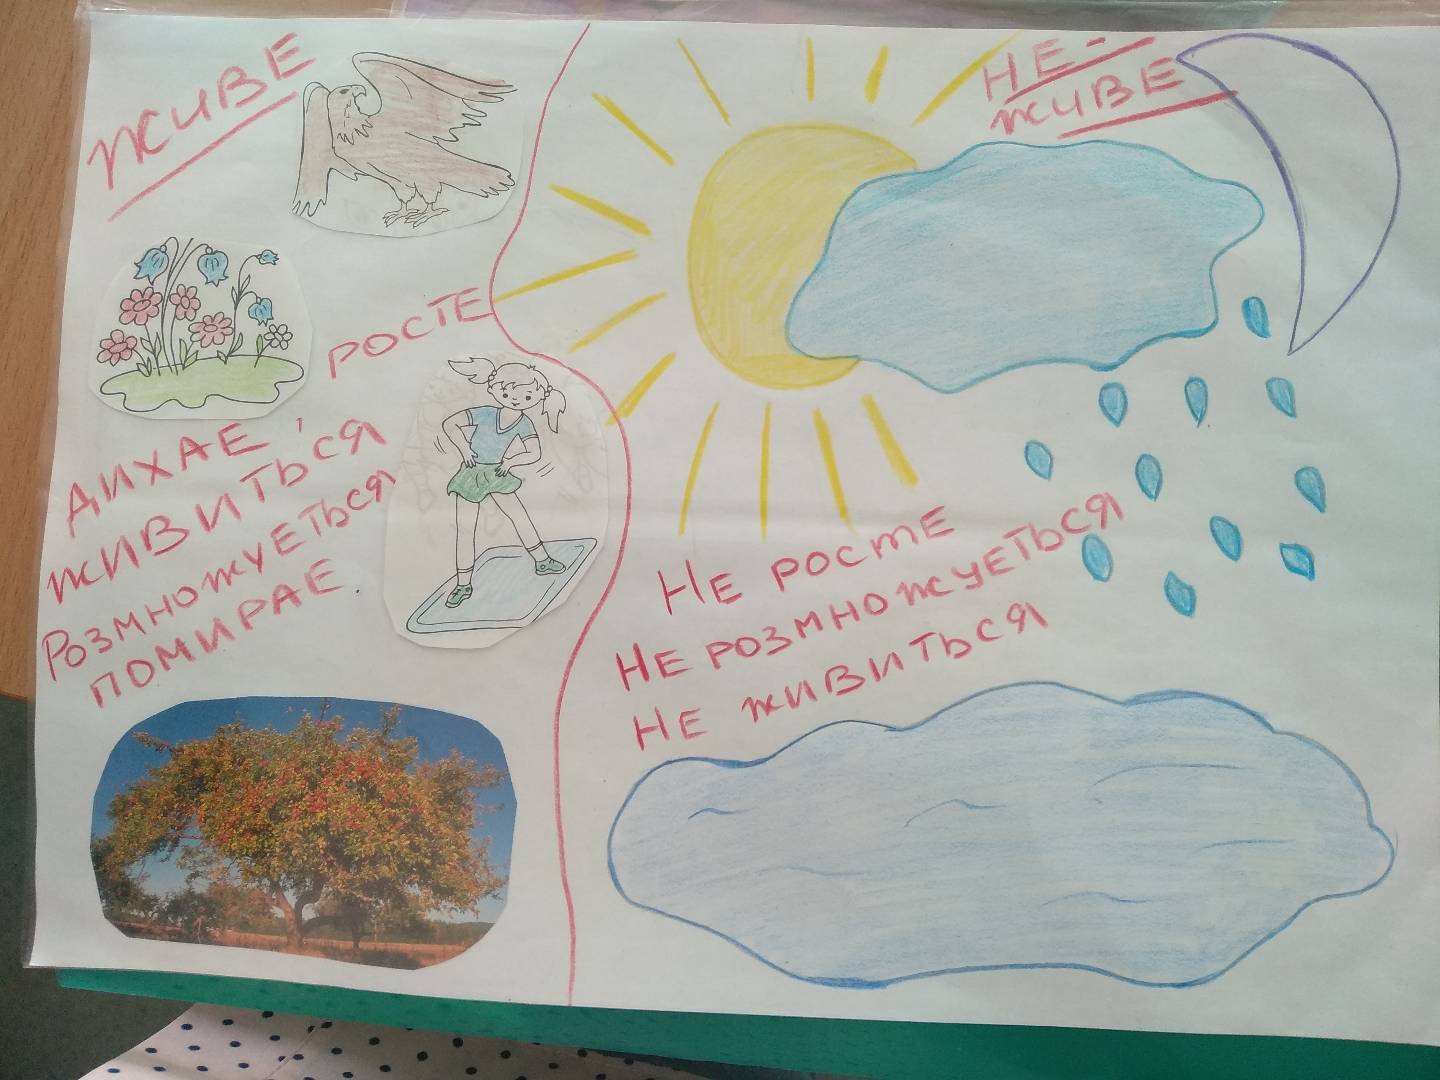 ЖИВЕ
РОСТЕ
ДИХАЕ,
ЖИВИТЬСЯ
РОЗМНОЖУЕТЬСЯ
ПОМИРАЕ
НЕ-
ЖИВЕ
НЕ РОСТЕ
НЕ РОЗМНОЖУЕТЬСЯ
НЕ ЖИВИТЬСЯ